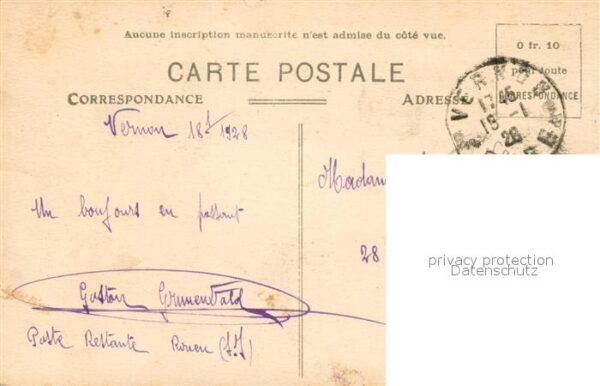 Aucune inscription manuscrite n'est admise du côté vue.
CARTE POSTALE
0 fr. 10
pour toute
CORRESPONDANCE
CORRESPONDANCE
ADRESSE
VERNON
17 45
18 - 1
28
EURE
Vernon 18/1 1928
Un bonjours en passant
Gaston Grunenwald
Poste Restante Rouen (S.I)
Madam
28
privacy protection
Datenschutz